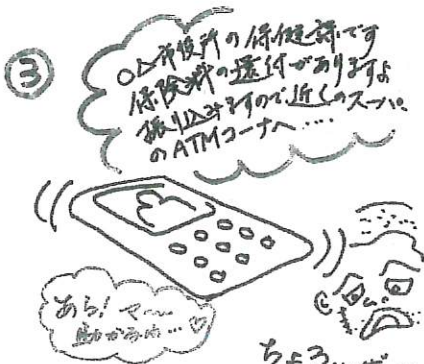 ③
○△市役所の保健課です
保険料の還付がありますよ
振り込みますので近くのスーパー
のATMコーナへ・・・・
あら！マ〜〜
ちょろいぜ